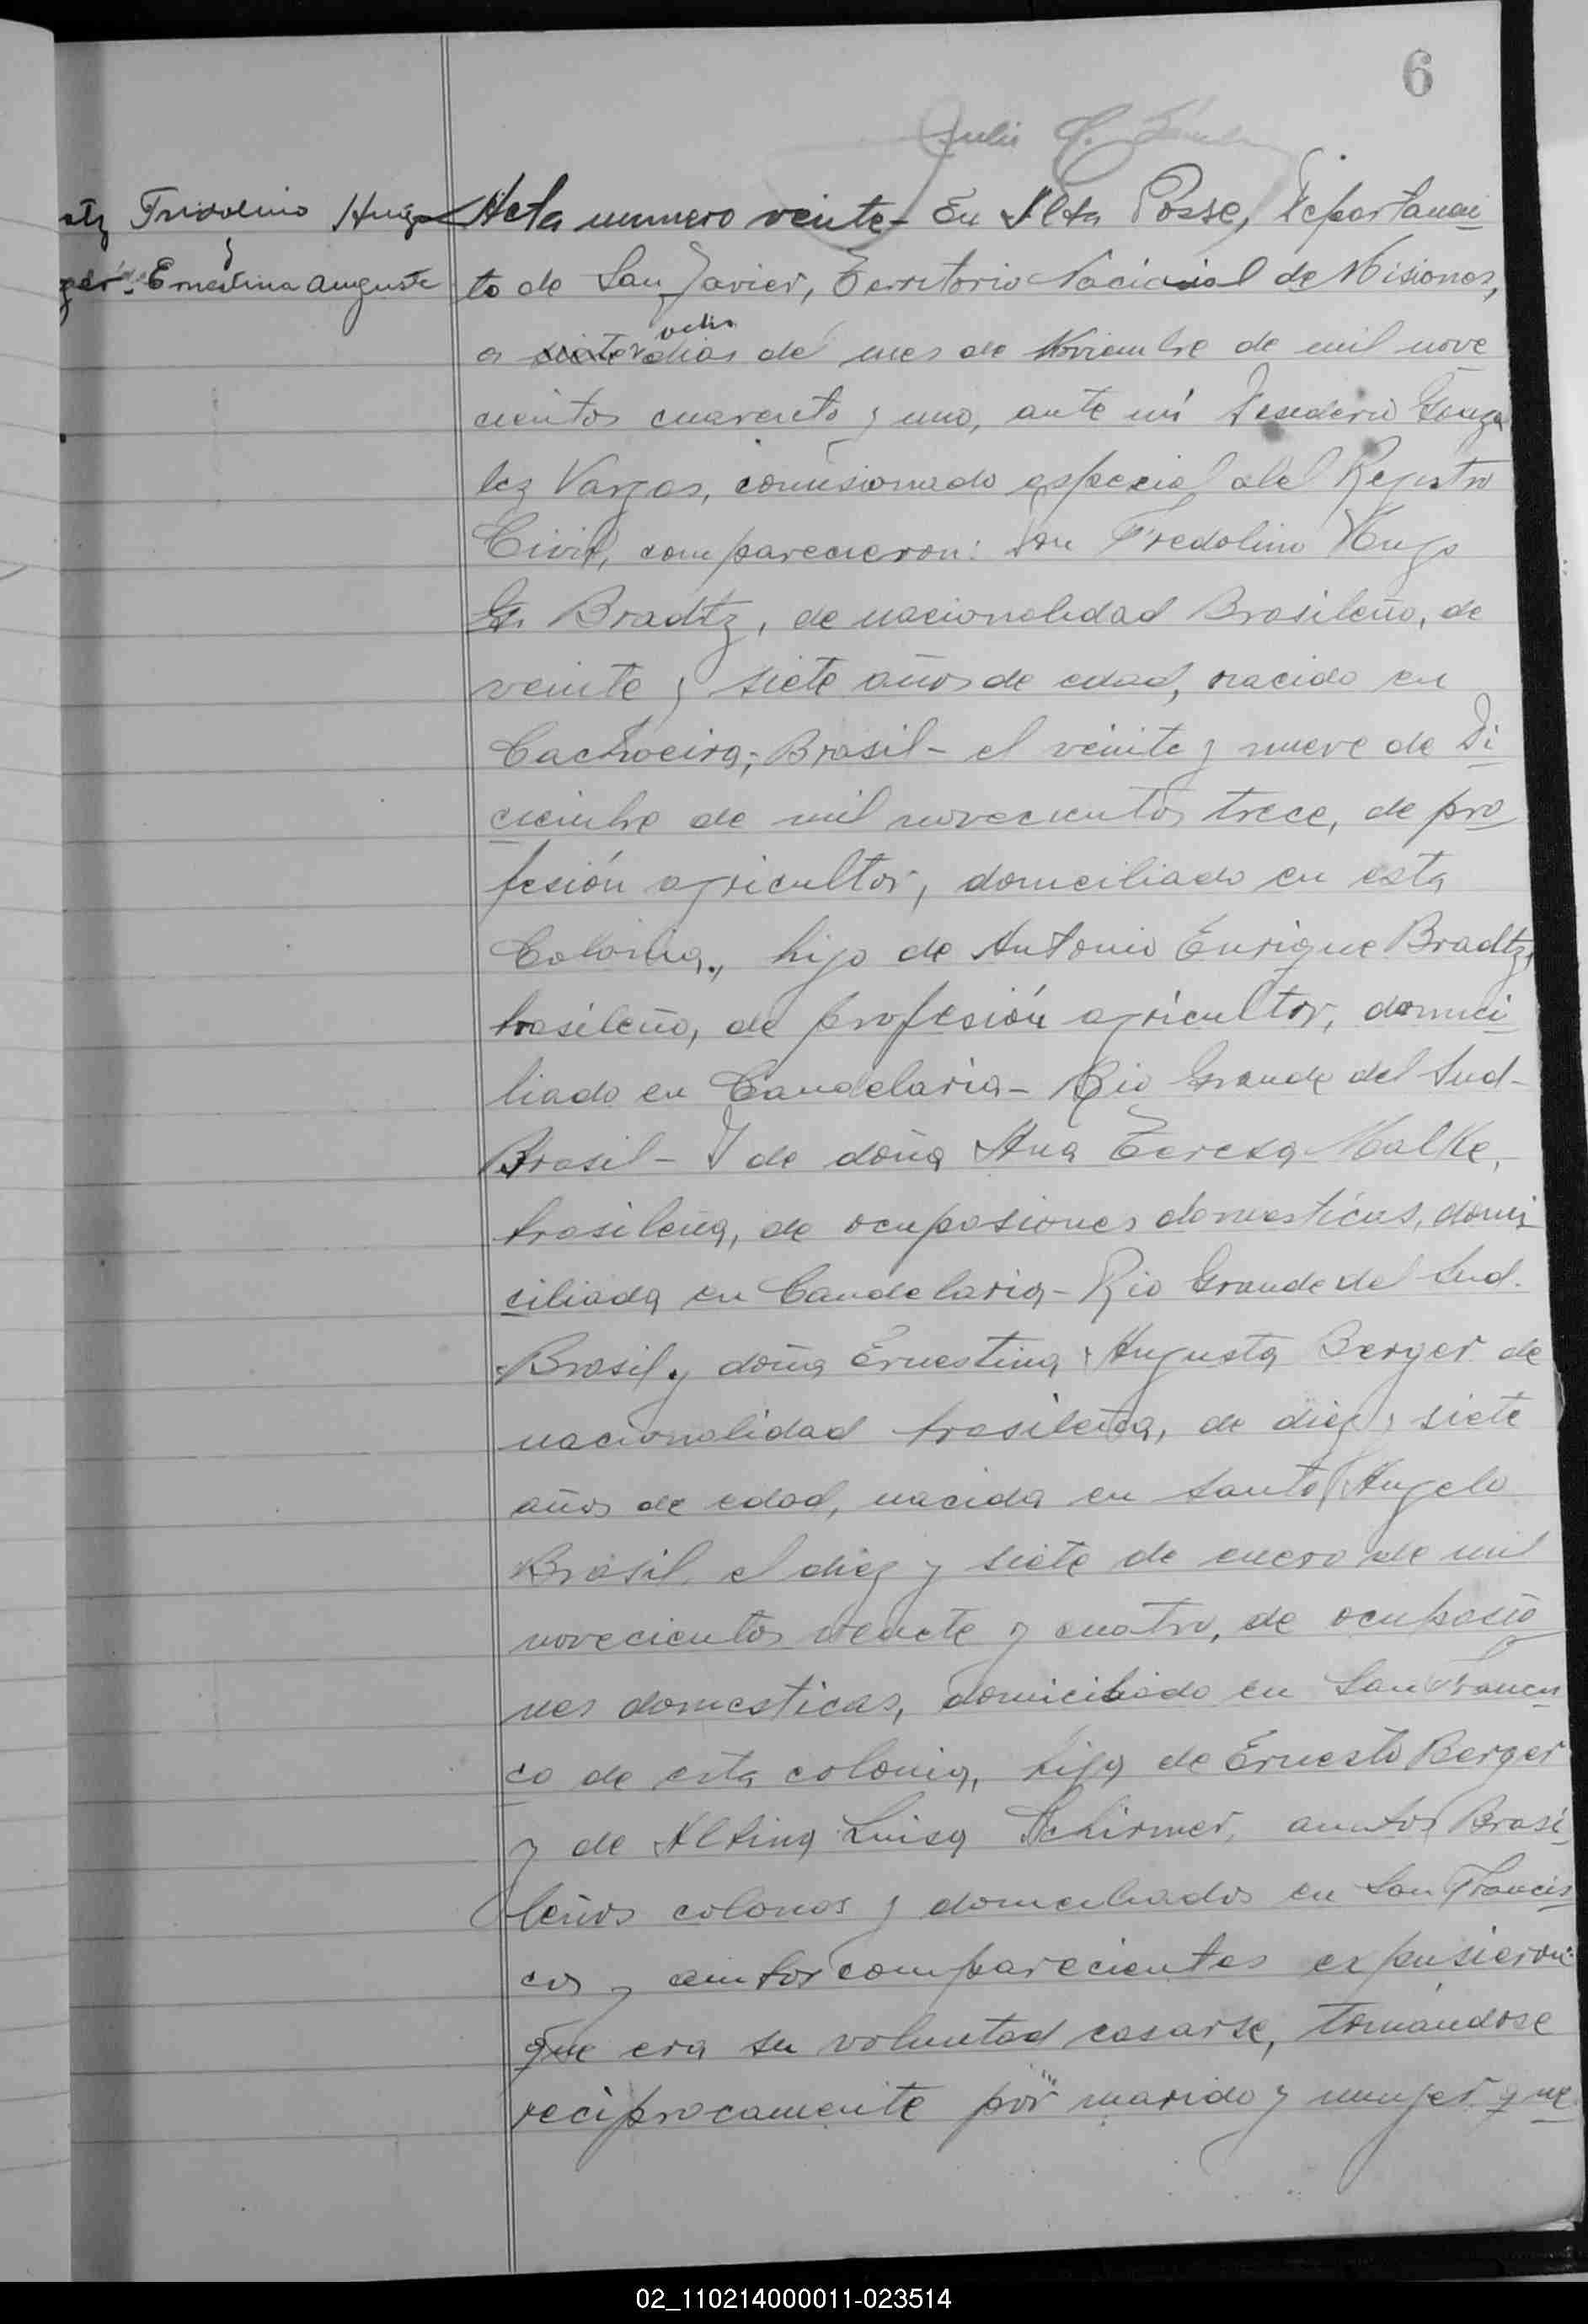 6
Julio C.
Acta numero veinte - En Alba Posse, Departamen
to de San Javier, Territorio Nacional de Misiones,
ocho
a siete dias del mes de Noviembre de mil nove
cientos cuarenta y uno, ante mi Desiderio Gonza
lez Vargas, comisionado especial del Registro
Civil, comparecieron: Don Fredolino Hugo
G. Bradtz, de nacionalidad Brasileño, de
veinte y siete años de edad, nacido en
Cachoeira, Brasil - el veinte y nueve de Di
ciembre de mil novecientos trece, de pro
fesión agricultor, domiciliado en esta
Colonia., hijo de Antonio Enrique Bradtz,
brasileño, de profesión agricultor, domici
liado en Candelaria - Rio Grande del Sud -
Brasil - Y de doña Ana Teresa Malke,
brasileña, de ocupasiones domesticas, domi
ciliada en Candelaria - Rio Grande del Sud.
Brasil y doña Ernestina Augusta Berger de
nacionalidad brasileña, de diez y siete
años de edad, nacida en Santo Angelo
Brasil, el diez y siete de enero de mil
novecientos veinte y cuatro, de ocupasio
nes domesticas, domiciliado en San Francis
co de esta colonia, hija de Ernesto Berger
y de Albina Luisa Schirmer, ambos Brasi
leños colonos y domiciliados en San Francis
co, y ambos comparecientes expusieron:
que era su voluntad casarse, tomandose
reciprocamente por marido y mujer que
atz Fridolino Hugo
y
ger - Ernestina Auguste
02_110214000011-023514